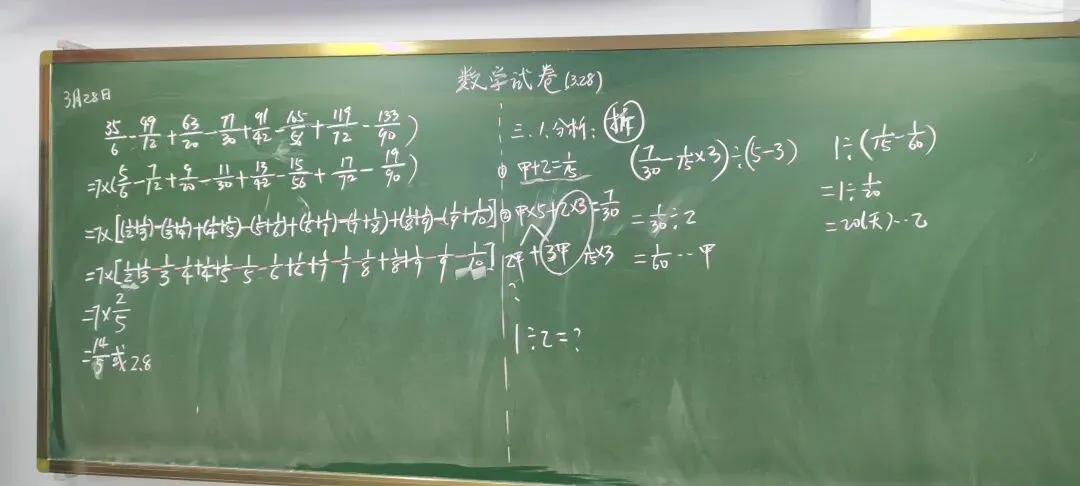 数学试卷(3.28)
3月28日
35/6 - 49/12 + 63/20 - 77/30 + 91/42 - 165/56 + 119/72 - 133/90)
=7×(5/6 - 7/12 + 9/20 - 11/30 + 13/42 - 15/56 + 17/72 - 19/90)
=7×[(1/2+1/3)-(1/3+1/4)+(1/4+1/5)-(1/5+1/6)+(1/6+1/7)-(1/7+1/8)+(1/8+1/9)-(1/9+1/10)]
=7×[1/2+1/3-1/3-1/4+1/4+1/5-1/5-1/6+1/6+1/7-1/7-1/8+1/8+1/9-1/9-1/10]
=7×2/5
=14/5或2.8
三.1.分析: 拆
① 甲+乙=1/15
② 甲×5+乙×3=7/30
2甲+3甲 1/15×3
?
1÷乙=?
(7/30-1/15×3)÷(5-3)
=1/30÷2
=1/60…甲
1÷(1/15-1/60)
=1÷1/20
=20(天)…乙